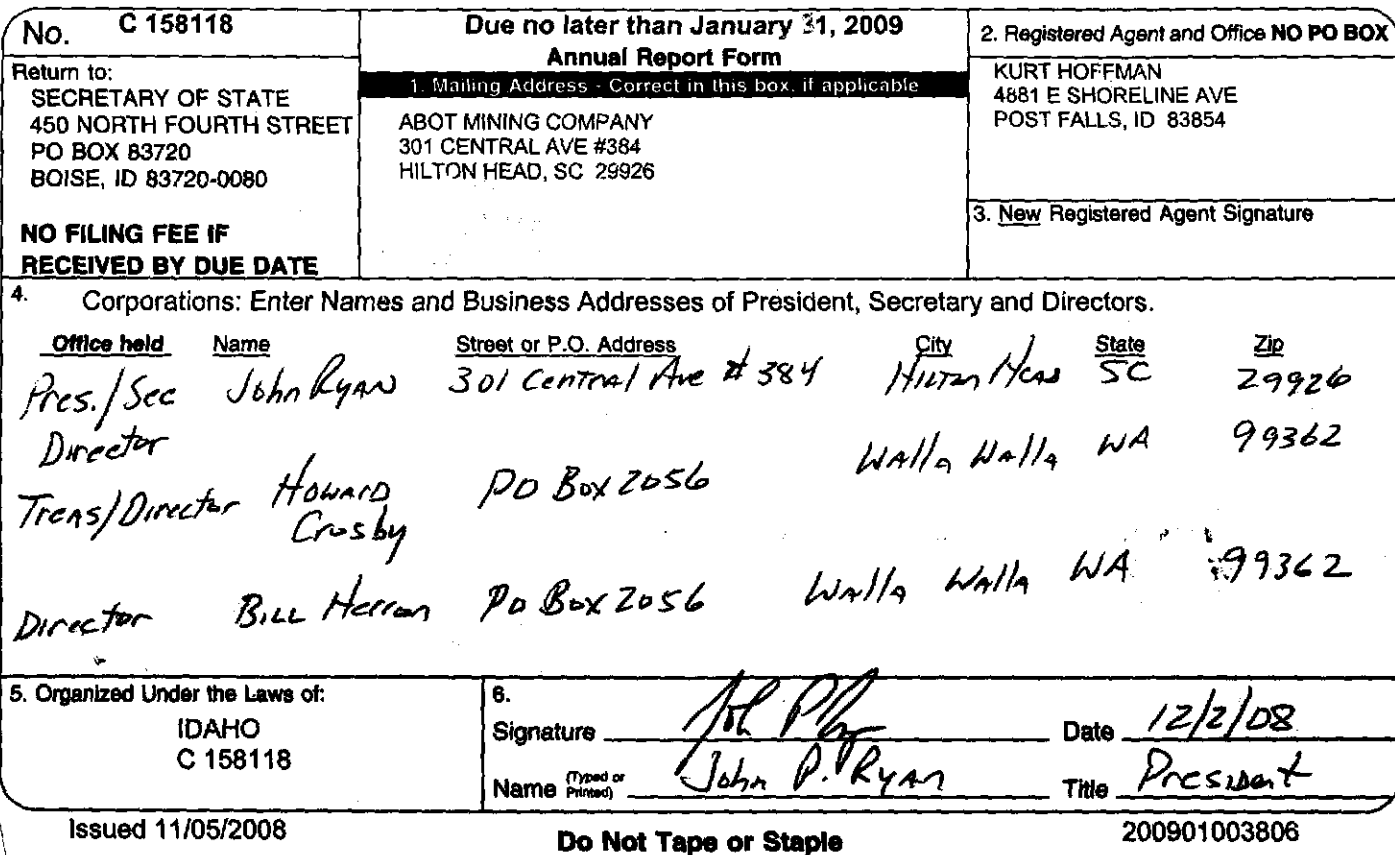 No. C 158118
Return to:
SECRETARY OF STATE
450 NORTH FOURTH STREET
PO BOX 83720
BOISE, ID 83720-0080
NO FILING FEE IF
RECEIVED BY DUE DATE
Due no later than January 31, 2009
Annual Report Form
1. Mailing Address - Correct in this box, if applicable
ABOT MINING COMPANY
301 CENTRAL AVE #384
HILTON HEAD, SC 29926
2. Registered Agent and Office NO PO BOX
KURT HOFFMAN
4881 E SHORELINE AVE
POST FALLS, ID 83854
3. New Registered Agent Signature
4. Corporations: Enter Names and Business Addresses of President, Secretary and Directors.
Office held Name Street or P.O. Address City State Zip
Pres./Sec John Ryan 301 Central Ave # 384 Hilton Head SC 29926
Director
Treas/Director Howard Crosby PO Box 2056 Walla Walla WA 99362
Director Bill Herron Po Box 2056 Walla Walla WA 99362
5. Organized Under the Laws of:
IDAHO
C 158118
6.
Signature Date 12/2/08
Name (Typed or Printed) John P. Ryan Title President
Issued 11/05/2008 Do Not Tape or Staple 200901003806